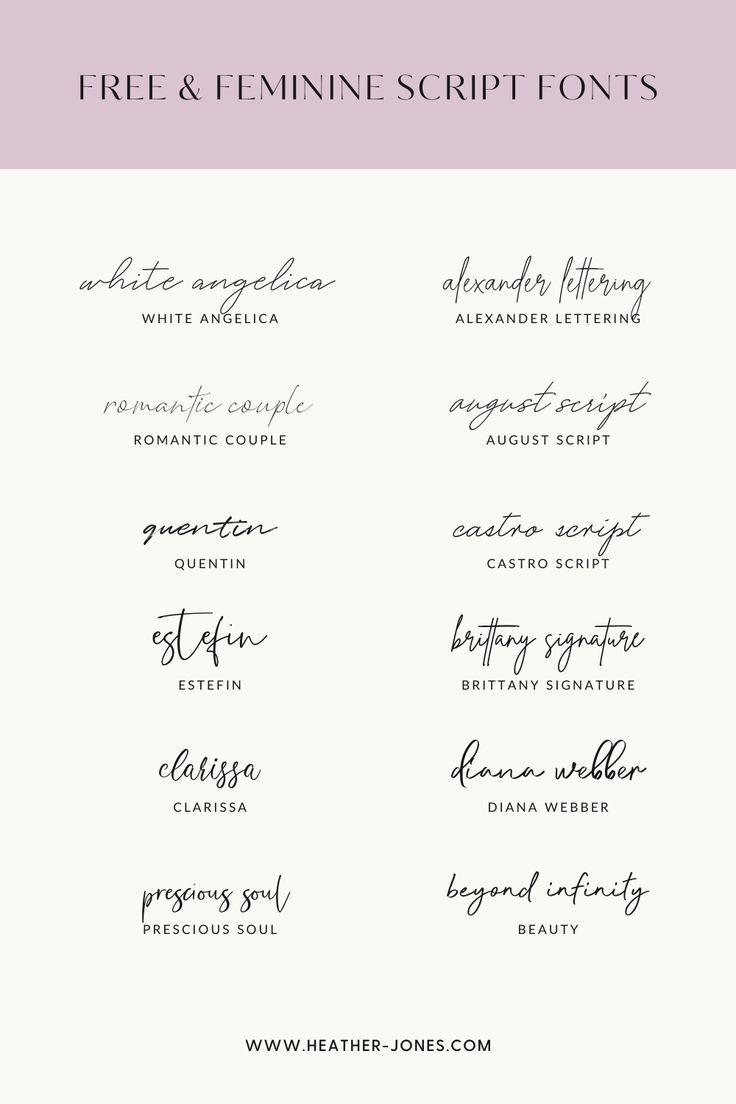 FREE & FEMININE SCRIPT FONTS
white angelica
WHITE ANGELICA
alexander lettering
ALEXANDER LETTERING
romantic couple
ROMANTIC COUPLE
august script
AUGUST SCRIPT
quentin
QUENTIN
castro script
CASTRO SCRIPT
estefin
ESTEFIN
brittany signature
BRITTANY SIGNATURE
clarissa
CLARISSA
diana webber
DIANA WEBBER
prescious soul
PRESCIOUS SOUL
beyond infinity
BEAUTY
WWW.HEATHER-JONES.COM